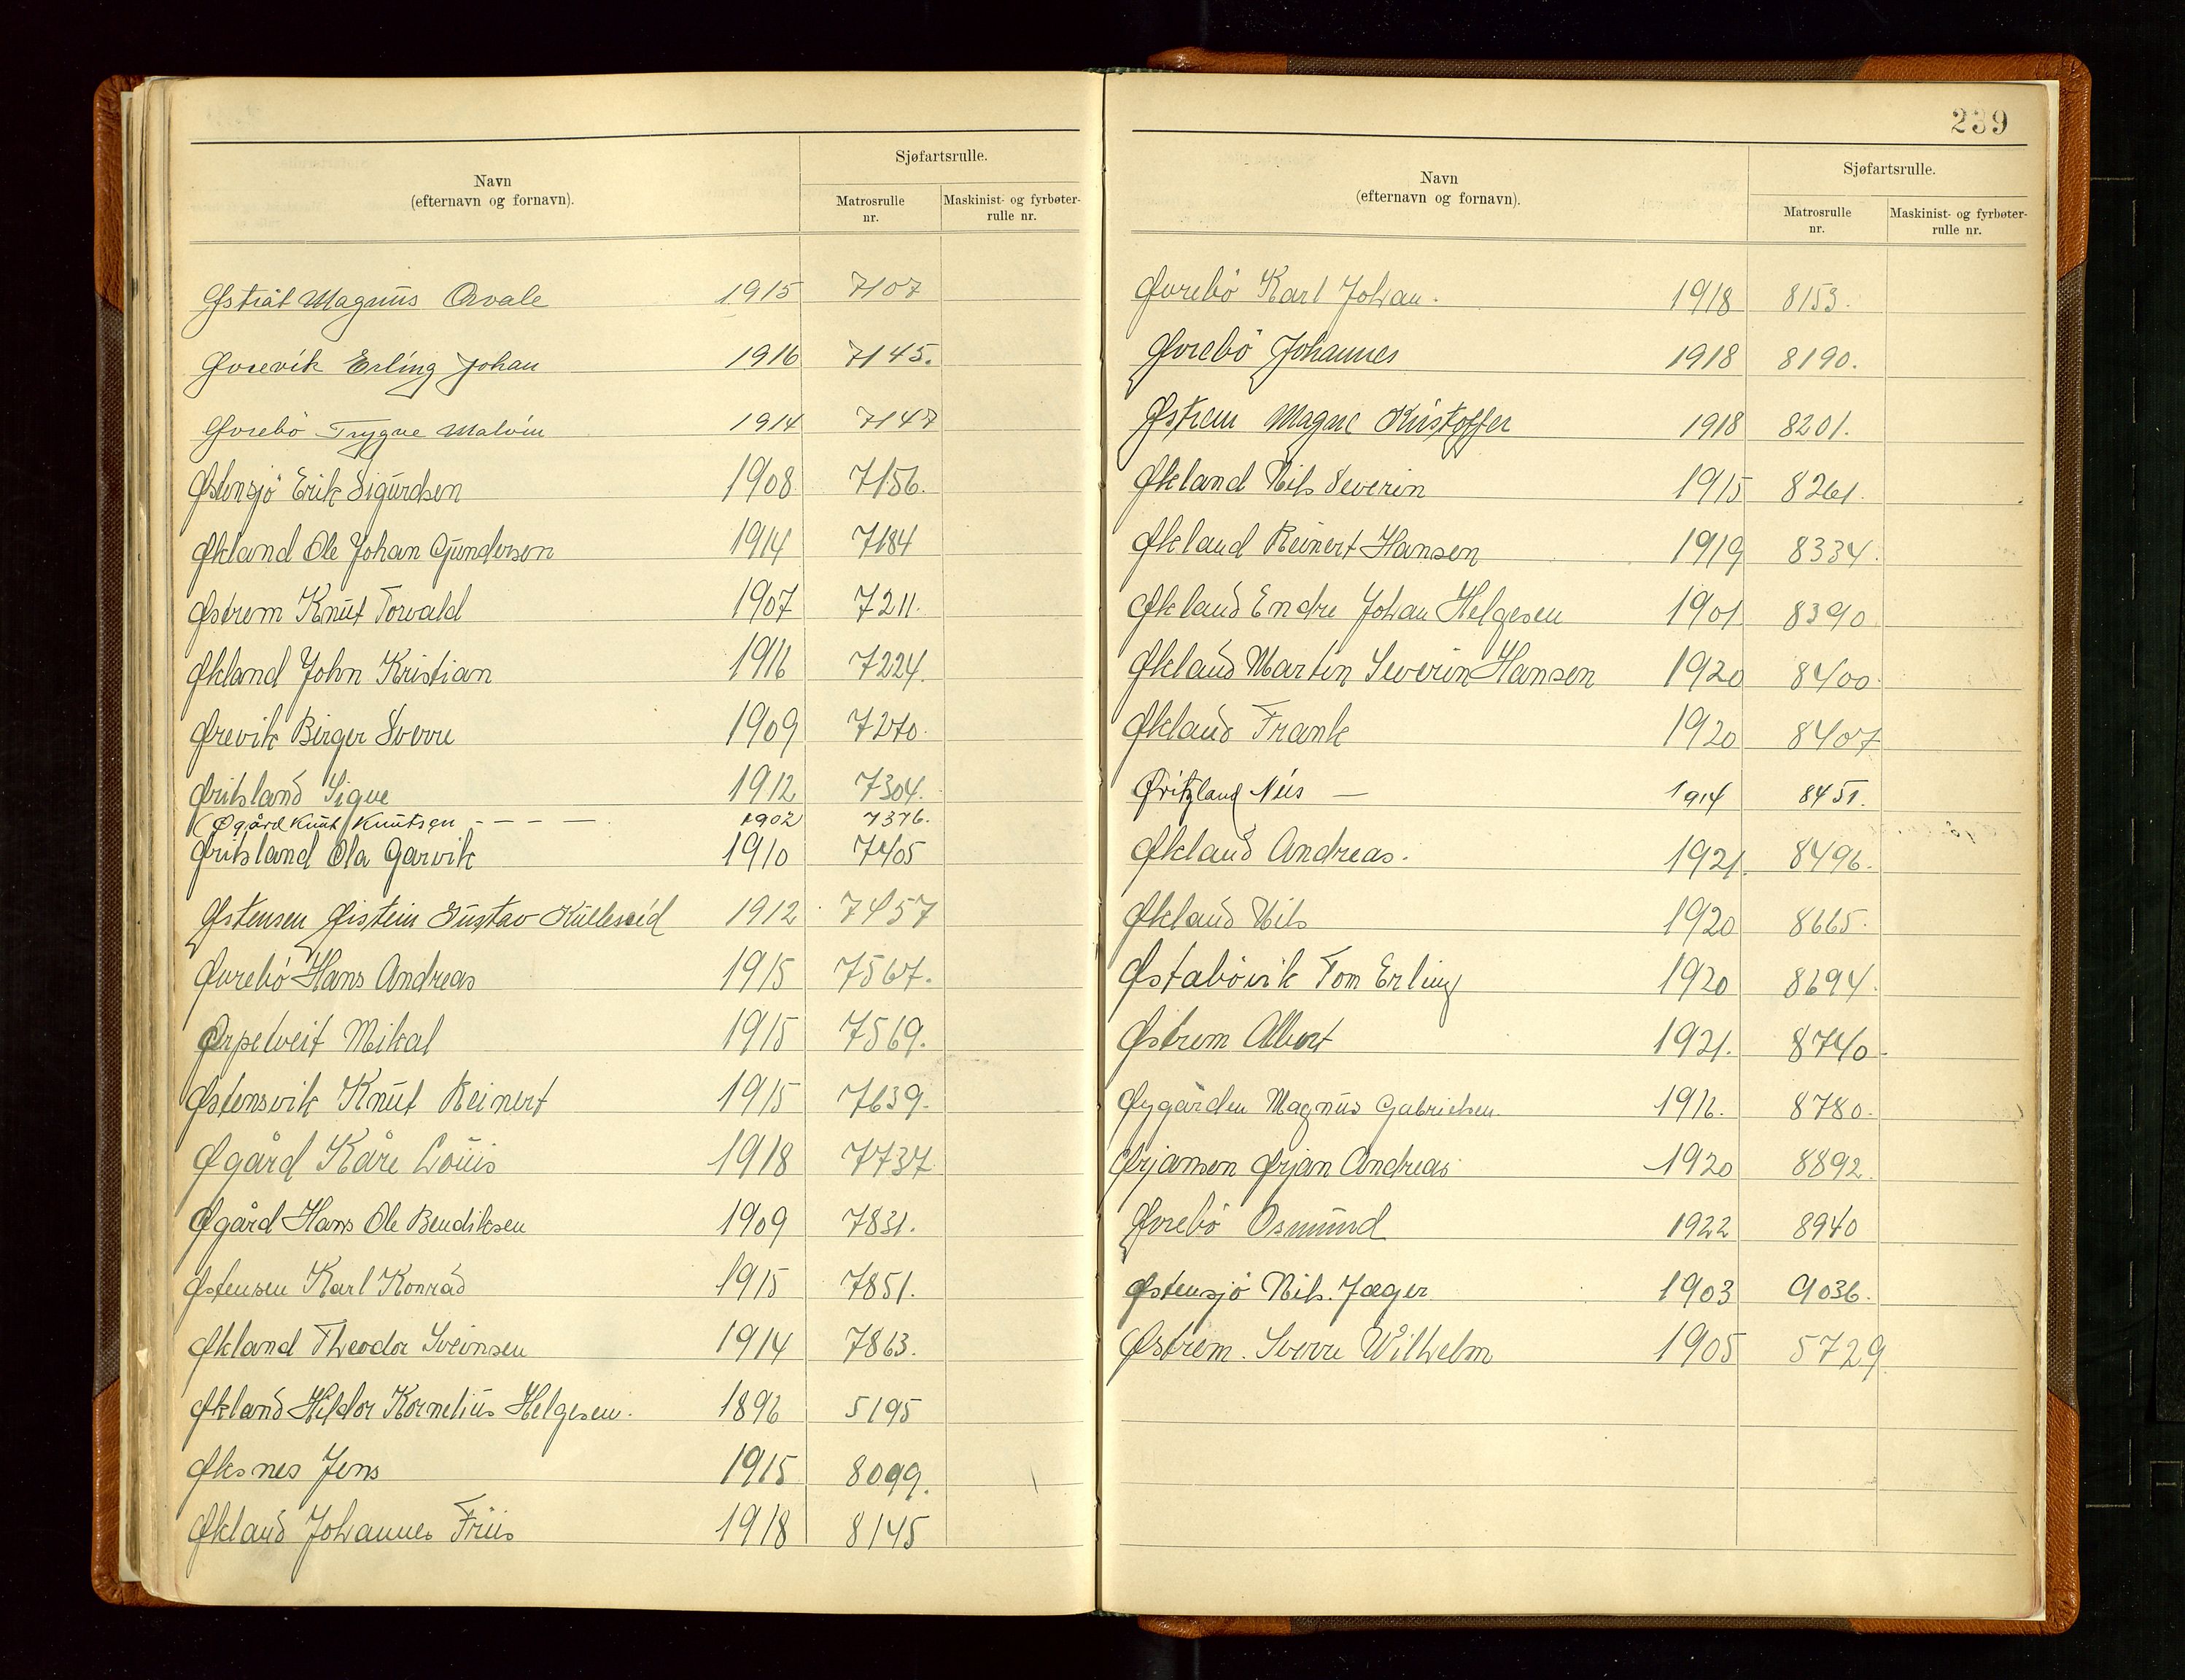 Navn
(efternavn og fornavn).
Sjøfartsrulle.
Matrosrulle nr.
Maskinist- og fyrbøter-rulle nr.
Magnus Orvale 1915 7107
Øvrevik Erling Johan 1916 7145.
Øvrebö Trygve Malvin 1914 7147
Østensjö Erik Sigurdsen 1908 7156.
Økland Ole Johan Gundersen 1914 7184
Østrem Knut Torvald 1907 7211.
Økland John Kristian 1916 7224.
Ørevik Birger Sverre 1909 7240.
Øritsland Signe 1912 7304.
Øgård Knut Knutsen - - - - 1902 7376.
Øritsland Ola Garvik 1910 7405
Østensen Øistein Gustav 1912 7457
Øvrebö Hans Andreas 1915 7567.
Ørpetveit Mikal 1915 7569.
Østensvik Knut Reinert 1915 7639.
Øgård Kåre Louis 1918 7737
Øgård Hans Ole Bendiksen 1909 7831.
Østensen Karl Konrad 1915 7851.
Økland Theodor Sveinsen 1914 7863.
Økland Hildor Kornelius Helgesen. 1896 5195
Øksnes Jens 1915 8099.
Økland Johannes Friis 1918 8145
239
Navn
(efternavn og fornavn).
Sjøfartsrulle.
Matrosrulle nr.
Maskinist- og fyrbøter-rulle nr.
Øvrebö Karl Johan. 1918 8153.
Øvrebö Johannes 1918 8190.
Østrem Magne Kristoffer 1918 8201.
Økland Nils Severin 1915 8261.
Økland Reinert Hansen 1919 8334.
Økland Endre Johan Helgesen 1901 8390
Økland Martin Severin Hansen 1920 8400.
Økland Frank 1920 8407
Øritzland Nils — 1914 8451.
Økland Andreas. 1921. 8496.
Økland Nils 1920 8665.
Østabövik Tom Erling 1920 8694.
Østrem Albert 1921. 8740.
Øygarden Magnus Gabrielsen. 1916. 8780.
Ørjansen Ørjan Andreas 1920 8892.
Øvrebö Osmund 1922 8940
Østensjö Nils. Jæger 1903 9036.
Østrem. Sverre Wilhelm 1905 5729